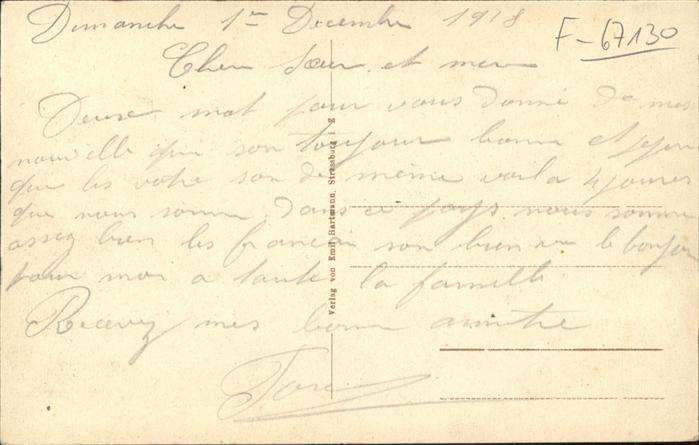 Dimanche 1er Decembre 1918
F-67130
Cher Sœur et mere
Deux mot pour vous donné de mes
nouvelle qui son toujour bonne et
que les votre son de même voila 4 jours
que nous somme dans ce pays nous somme
assez bien les francai son bien vu le bonjour
pour moi a toute la famille
Recevez mes bonne amitie
Verlag von Emil Hartmann, Strassburg i. E.